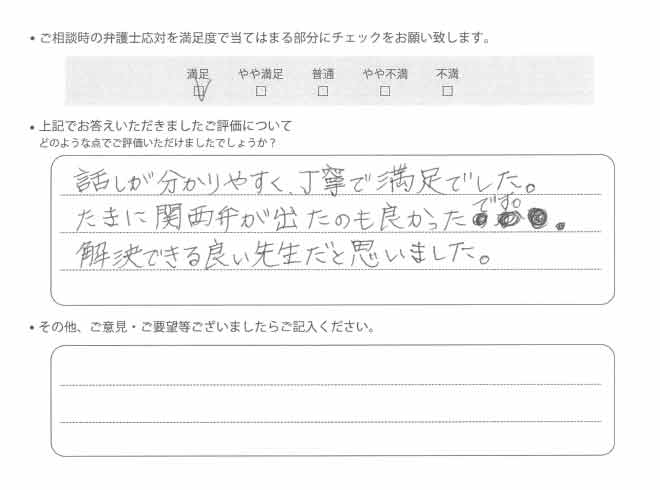 • ご相談時の弁護士応対を満足度で当てはまる部分にチェックをお願い致します。
満足 やや満足 普通 やや不満 不満
☑ □ □ □ □
• 上記でお答えいただきましたご評価について
どのような点でご評価いただけましたでしょうか？
話しが分かりやすく、丁寧で満足でした。
たまに関西弁が出たのも良かったです。
解決できる良い先生だと思いました。
• その他、ご意見・ご要望等ございましたらご記入ください。